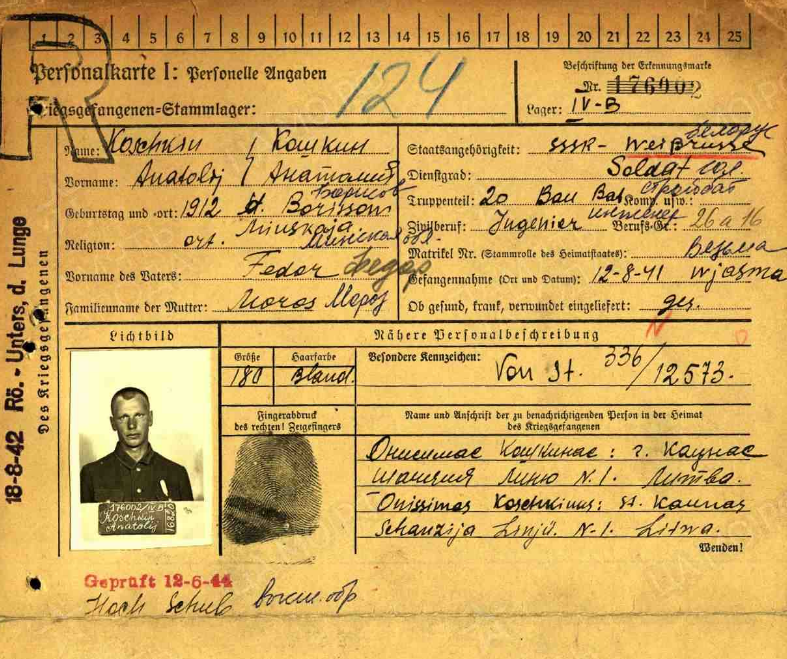 1 2 3 4 5 6 7 8 9 10 11 12 13 14 15 16 17 18 19 20 21 22 23 24 25
R
Personalkarte I: Personelle Angaben
124
Kriegsgefangenen=Stammlager:
Beschriftung der Erkennungsmarke
Nr. 176902
Lager: IV-B
Des Kriegsgefangenen
18-8-42 Rö.- Unters, d. Lunge
Name: Koschkin / Кошкин
Vorname: Anatolij / Анатолий
Geburtstag und =ort: 1912 Borissow Борисов
Minskaja
Religion: ort.
Vorname des Vaters: Fedor Федор
Familienname der Mutter: Moros Мороз
Staatsangehörigkeit: SSSR-
Dienstgrad: Soldat
Truppenteil: 20 Bau Bat. Komp. usw.: стройбат
Zivilberuf: Ingenier инженер Berufs-Gr.: 26 a 16
Matrikel Nr. (Stammrolle des Heimatstaates): Вязьма
Gefangennahme (Ort und Datum): 12-8-41 Wjasma
Ob gesund, krank, verwundet eingeliefert: ges.
Lichtbild
Nähere Personalbeschreibung
Größe
180
Haarfarbe
Bland.
Besondere Kennzeichen:
Von St. 336/12573.
Fingerabdruck
des rechten! Zeigefingers
Name und Anschrift der zu benachrichtigenden Person in der Heimat
des Kriegsgefangenen
Онисимас Кошкинас: г. Каунас
Шанция Линю N.1. Литва.
Onissimas Koschkinus: st. Kaunas
Schanzija Linju. N-1. Litwa.
Wenden!
Koschkin
Anatolij
Geprüft 12-6-44